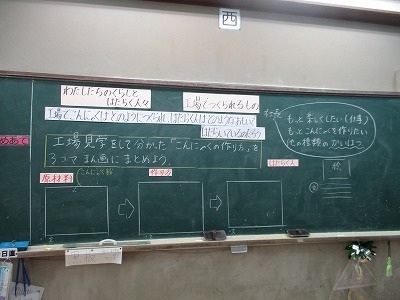 西
わたしたちのくらしと
はたらく人々
工場でつくられるもの
工場でこんにゃくはどのようにつくられ、はたらく人はどのようなおもいで
はたらいているのだろう
めあて
工場見学をして分かった「こんにゃくの作り方」を
3つでまん画にまとめよう。
もっと楽しくしたい(仕事)
もっとこんにゃくを作りたい
他の種類のかいはつ
原材料
こんにゃく粉
作り方
はたらく人
絵
日直